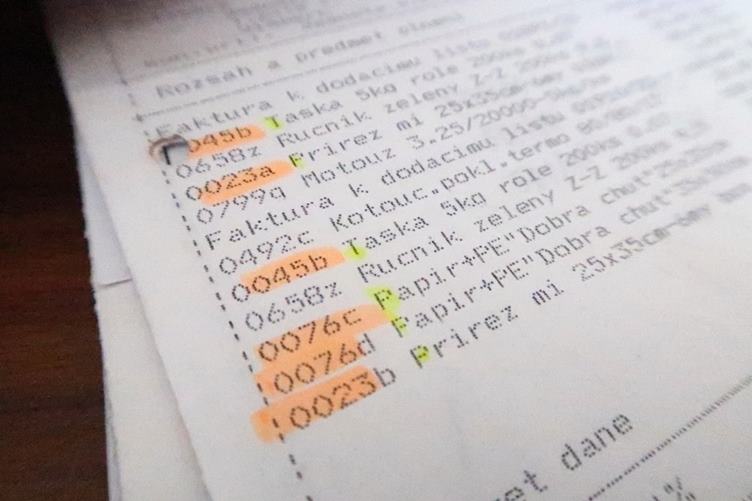 Rozsah a predmet plneni
Faktura k dodacimu listu
0045b Taska 5kg role 200ks
0658z Rucnik zeleny Z-Z 200ks
0023a Prirez mi 25x35cm-
0799q Motouz 3.25/20000-5kg/
Faktura k dodacimu listu
0492c Kotouc.pokl.termo 80/80/17
0045b Taska 5kg role 200ks
0658z Rucnik zeleny Z-Z 200ks
0076c Papir+PE"Dobra chut"
0076d Papir+PE"Dobra chut"
0023b Prirez mi 25x35cm-
et dane
%